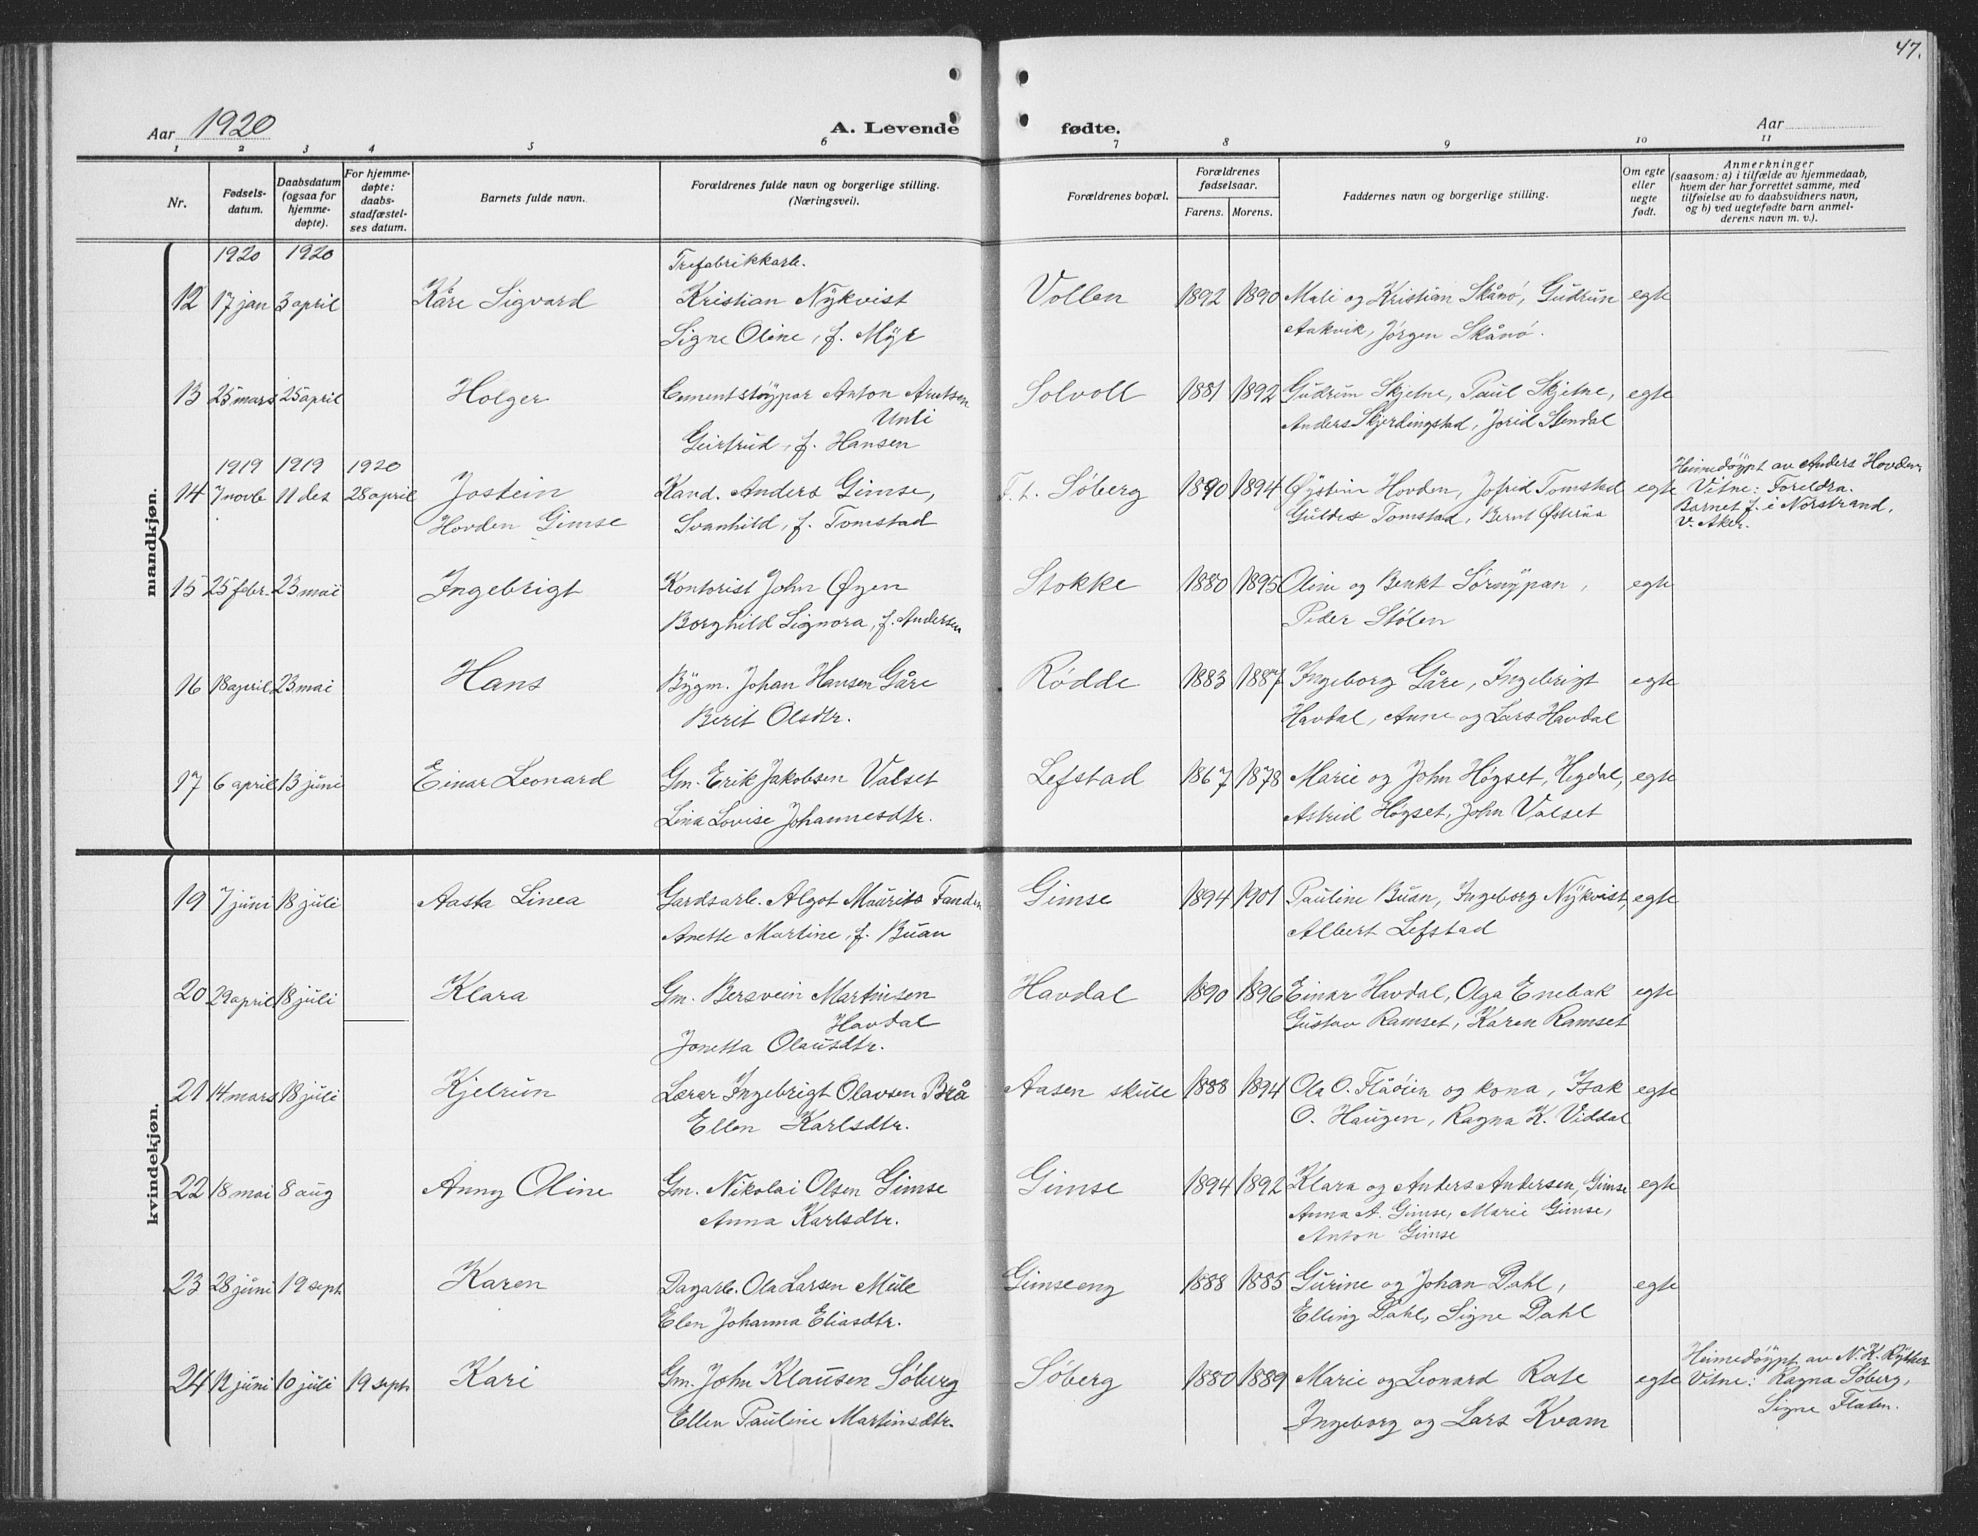 47.
Aar 1920 A. Levende fødte. Aar
1 2 3 4 5 6 7 8 9 10 11
Nr. Fødsels-datum. Daabsdatum (ogsaa for hjemme-døpte). For hjemme-døpte: daabs-stadfæstel-ses datum. Barnets fulde navn. Forældrenes fulde navn og borgerlige stilling. (Næringsvei). Forældrenes bopæl. Forældrenes fødselsaar. Farens. Morens. Faddernes navn og borgerlige stilling. Om egte eller uegte født. Anmerkninger (saasom: a) i tilfælde av hjemmedaab, hvem der har forrettet samme, med tilføielse av to daabsvidners navn, og b) ved uegtefødte barn anmel-derens navn m. v.).
mandkjøn.
1920 1920 Trefabrikkarb.
12 17 jan 3 april Kåre Sigvard Kristian Nykvist Vollen 1892 1890 Mali og Kristian Skånø, Gudrun egte
Signe Oline, f. Myr Aakvik, Jørgen Skånø.
13 25 mars 25 april Holger Cementstøypar Anton Arntsen Solvoll 1881 1892 Gudrun Skjetne, Paul Skjetne, egte
Unti Anders Skjerdingstad, Jorid Stendal
Geirtrud, f. Hansen
1919 1919 1920 Heimedøypt av Anders Hovden
14 7 novb 11 des 28 april Jostein Kand. Anders Gimse, F. t. Søberg 1890 1894 Øystein Hovden, Jofrid Tomstad egte Vitne: Foreldra.
Hovden Gimse Svanhild, f. Tomstad Tomstad, Bernt Barnet f. i Norstrand,
V. Aker.
15 25 febr. 23 mai Ingebrigt Kontorist John Øyen Stokke 1880 1895 Oline og Benkt Sørnypan, egte
Borghild Signora, f. Andersen Peder Stølen
16 18 april 23 mai Hans Bygm. Johan Hansen Gåre Rødde 1883 1887 Ingeborg Gåre, Ingebrigt egte
Berit Olsdtr. Havdal, Anne og Lars Havdal
17 6 april 13 juni Einar Leonard Gm. Erik Jakobsen Valset Lefstad 1867 1878 Marie og John Høgset, Hegdal, egte
Lina Lovise Johannesdtr. Astrid Høgset, John Valset
kvindekjøn.
19 7 juni 18 juli Aasta Linea Gardsarb. Algot Maurits Gimse 1894 1901 Pauline Buan, Ingeborg Nykvist, egte
Anette Martine, f. Buan Albert Lefstad
20 29 april 18 juli Klara Gm. Bersvein Martinsen Havdal 1890 1896 Einar Havdal, Olga Enebak egte
Havdal Gustav Ramset, Karen Ramset
Jonetta Olausdtr.
21 14 mars 18 juli Kjelrun Lærer Ingebrigt Olavsen Brå Aasen skule 1888 1894 Ola O. Flåøien og kona, Isak egte
Ellen Karlsdtr. O. Haugen, Ragna K. Viddal
22 18 mai 8 aug Anny Oline Gm. Nikolai Olsen Gimse Gimse 1894 1892 Klara og Anders Andersen, Gimse egte
Anna Karlsdtr. Anna A. Gimse, Marie Gimse,
Anton Gimse
23 28 juni 19 sept Karen Dagarb. Ola Larsen Mule Gimseeng 1888 1885 Gurine og Johan Dahl, egte
Elen Johanna Eliasdtr. Elling Dahl, Signe Dahl
Heimedøypt av N. K. Ryther
24 12 juni 10 juli 19 sept Kari Gm. John Klausen Søberg Søberg 1880 1889 Marie og Leonard Rate egte Vitne: Ragna Søberg,
Ellen Pauline Martinsdtr. Ingeborg og Lars Kvam Signe Flaten.